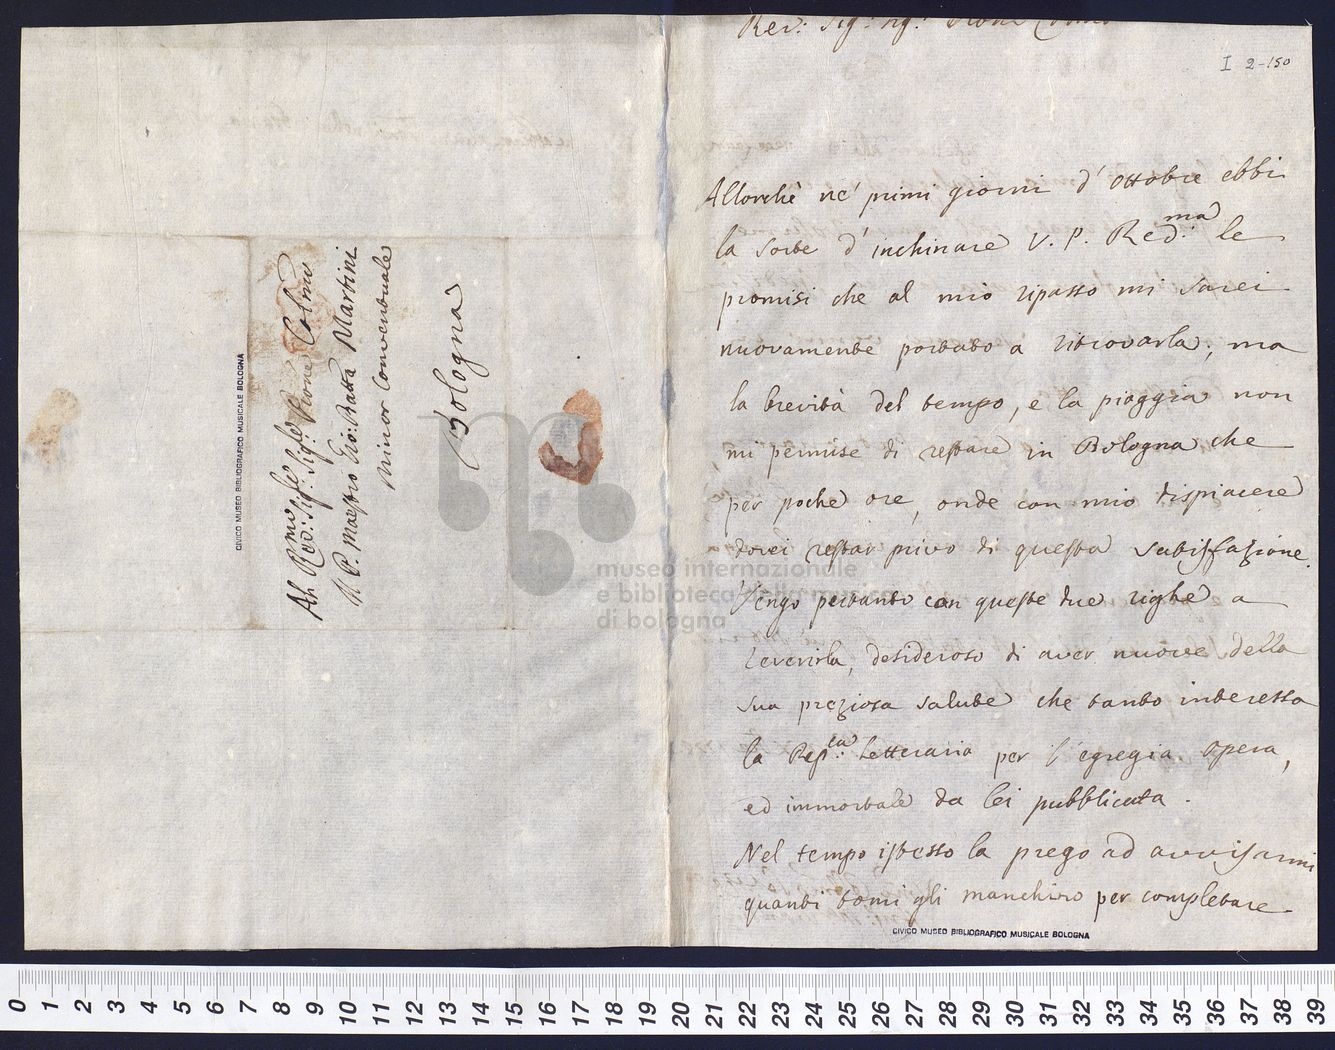 Al Rmo
Rev: Sig: Sig: Prone Colmo
Il P. Maestro Gio: Batta Martini
Minor Conventuale
Bologna
CIVICO MUSEO BIBLIOGRAFICO MUSICALE BOLOGNA
museo internazionale
e biblioteca della musica
di bologna
Rev: Sig: Sig: Prone Colmo
I 2-150
Allorchè ne' primi giorni d' Ottobre ebbi
la sorte d'inchinare V. P. Red.ma le
promisi che al mio ripasso mi sarei
nuovamente portato a ritrovarla, ma
la brevità del tempo, e la pioggia non
mi permise di restare in Bologna che
per poche ore, onde con mio dispiacere
dovei restar privo di questa satisffazione.
Vengo pertanto con queste due righe a
reverirla, desideroso di aver nuove della
sua preziosa salute che tanto interessa
la Rep:ca Letteraria per l'egregia opera,
ed immortale da lei pubblicata.
Nel tempo istesso la prego ad avvisarmi
quanti tomi gli manchino per completare
CIVICO MUSEO BIBLIOGRAFICO MUSICALE BOLOGNA
0 1 2 3 4 5 6 7 8 9 10 11 12 13 14 15 16 17 18 19 20 21 22 23 24 25 26 27 28 29 30 31 32 33 34 35 36 37 38 39